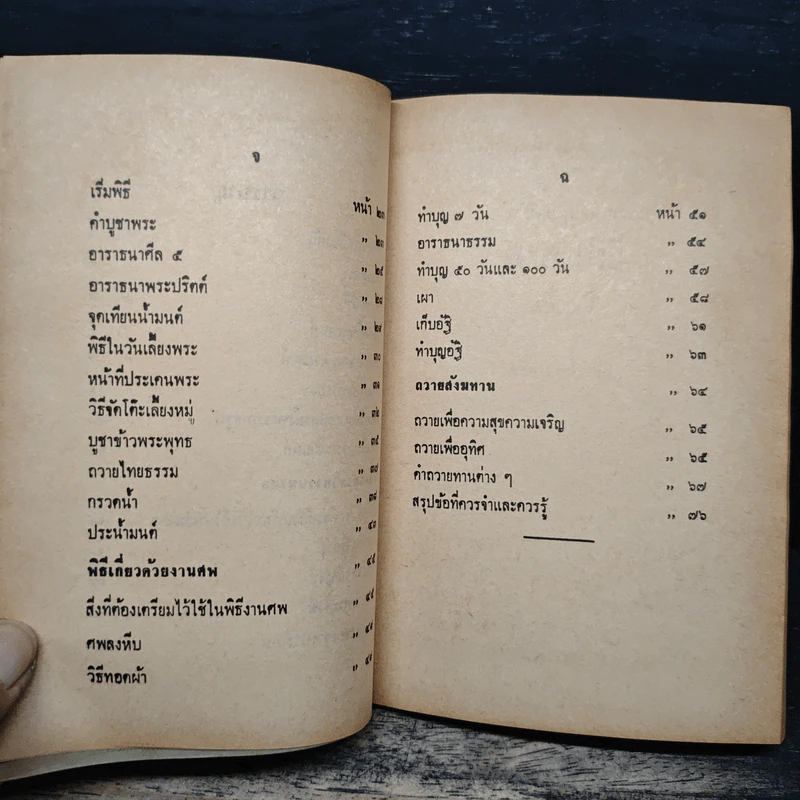 จ
หน้า
เริ่มพิธี ๒๓
คำบูชาพระ ,, ๒๓
อาราธนาศีล ๕ ,, ๒๕
อาราธนาพระปริตต์ ,, ๒๘
จุดเทียนน้ำมนต์ ,, ๒๙
พิธีในวันเลี้ยงพระ ,, ๓๐
หน้าที่ประเคนพระ ,, ๓๑
วิธีจัดโต๊ะเลี้ยงหมู่ ,, ๓๒
บูชาข้าวพระพุทธ ,, ๓๕
ถวายไทยธรรม ,, ๓๗
กรวดน้ำ ,, ๓๘
ประน้ำมนต์ ,, ๔๓
พิธีเกี่ยวด้วยงานศพ ,, ๔๕
สิ่งที่ต้องเตรียมไว้ใช้ในพิธีงานศพ ,, ๔๕
ศพลงหีบ ,,
วิธีทอดผ้า ,,
ฉ
ทำบุญ ๗ วัน หน้า ๕๑
อาราธนาธรรม ,, ๕๔
ทำบุญ ๕๐ วันและ ๑๐๐ วัน ,, ๕๗
เผา ,, ๕๘
เก็บอัฐิ ,, ๖๑
ทำบุญอัฐิ ,, ๖๓
ถวายสังฆทาน ,, ๖๔
ถวายเพื่อความสุขความเจริญ ,, ๖๕
ถวายเพื่ออุทิศ ,, ๖๕
คำถวายทานต่าง ๆ ,, ๖๗
สรุปข้อที่ควรจำและควรรู้ ,, ๗๖